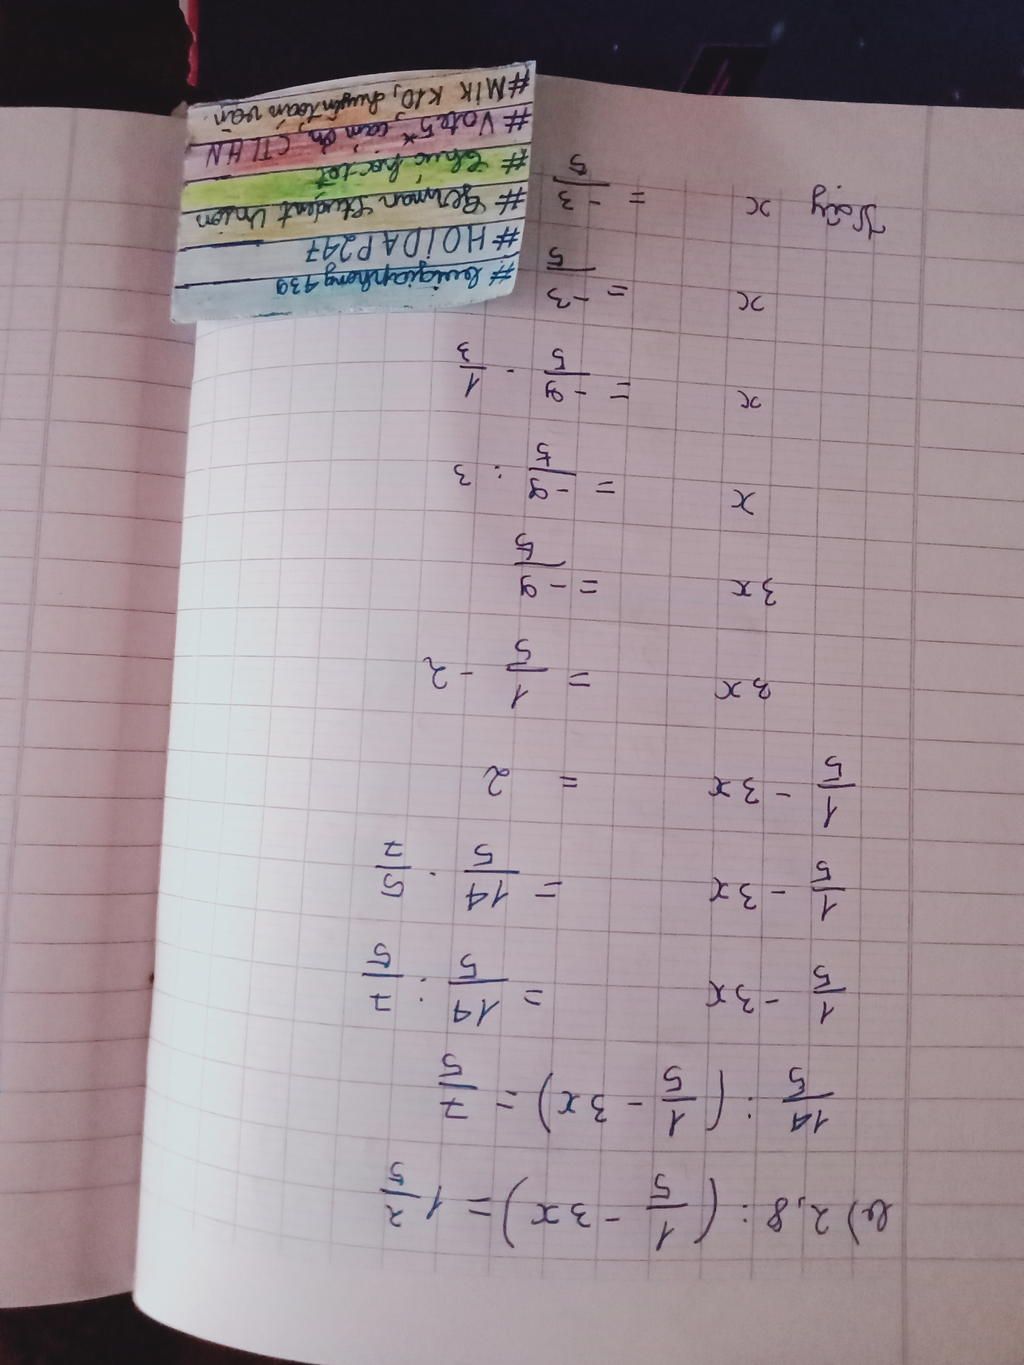 b) 2,8 : ( 1/5 - 3x ) = 1 2/5
14/5 : ( 1/5 - 3x ) = 7/5
1/5 - 3x = 14/5 : 7/5
1/5 - 3x = 14/5 . 5/7
1/5 - 3x = 2
3x = 1/5 - 2
3x = -9/5
x = -9/5 : 3
x = -9/5 . 1/3
x = -3/5
Vậy x = -3/5
#HOIDAP247
#German Student Union
#Chúc học tốt
#Vote 5*, cảm ơn, CTLHN
#MIK K10, chuyên toán văn